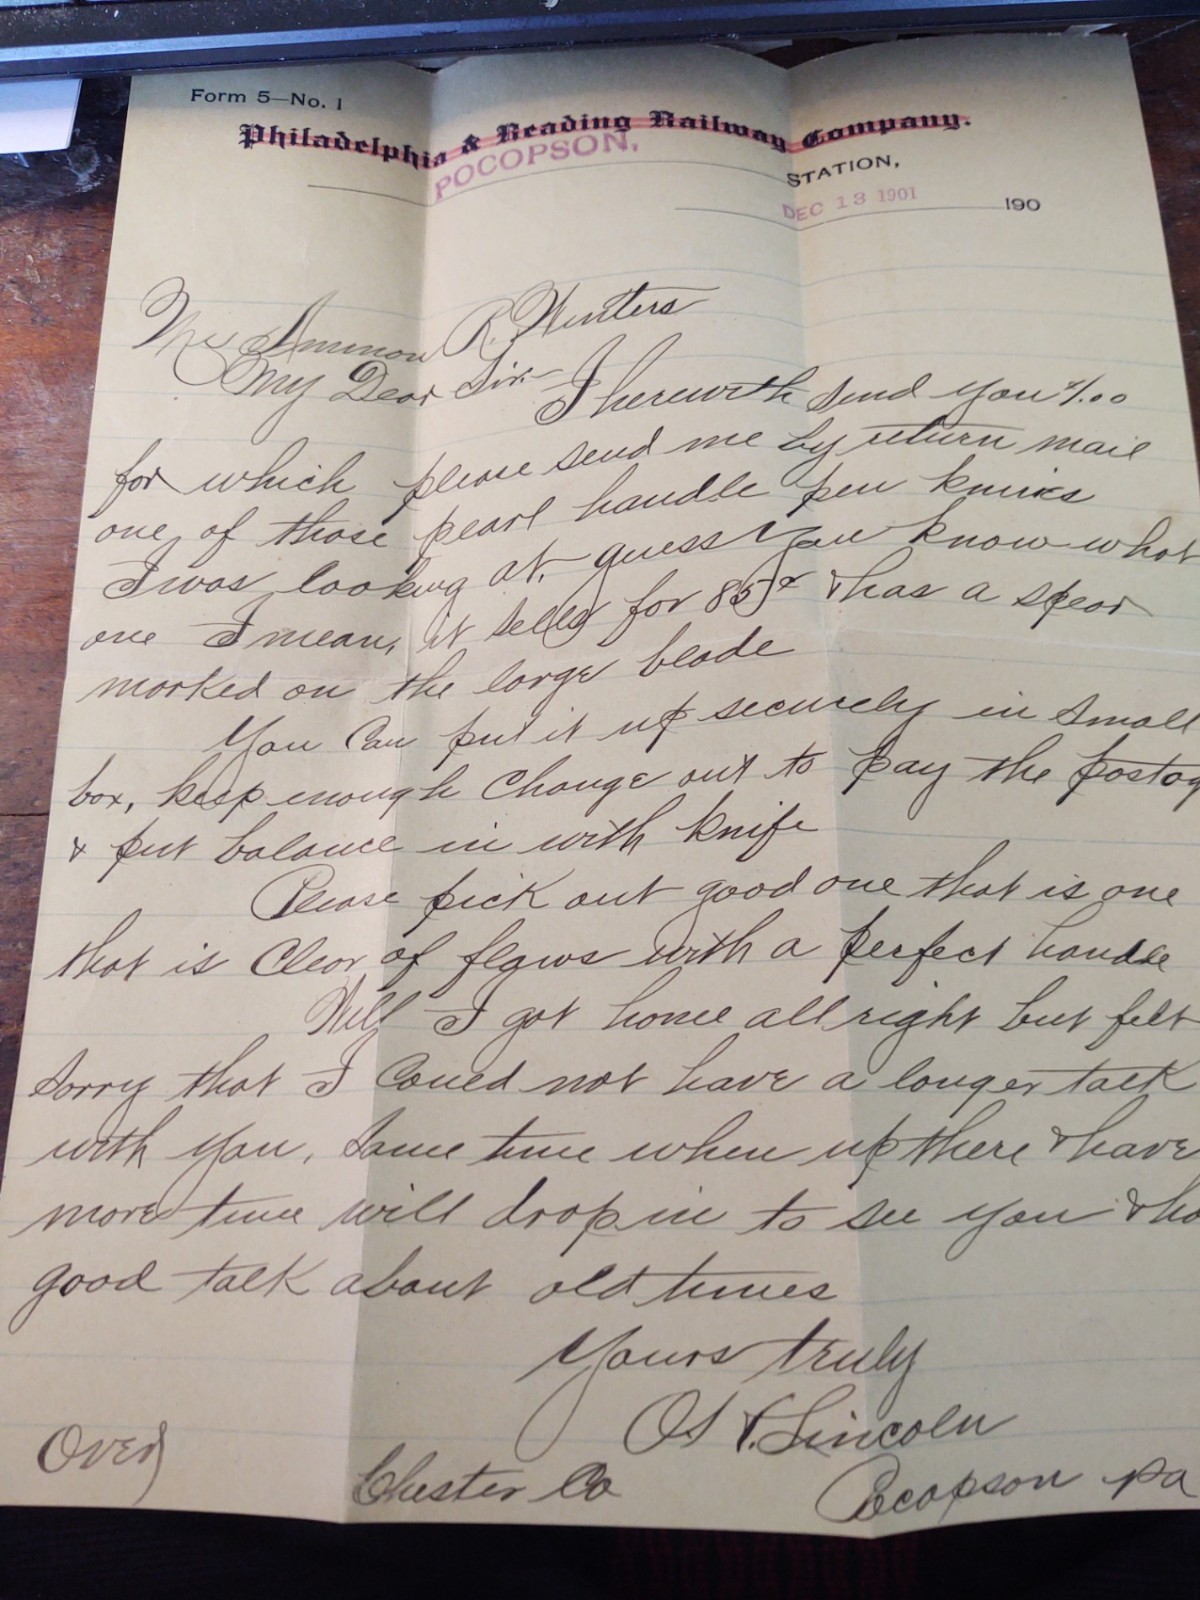 Form 5—No. 1
Philadelphia & Reading Railway Company.
POCOPSON,
STATION,
DEC 13 1901 190
Mr Ammon R. Winters
My Dear Sir—
I herewith send you $1.00
for which please send me by return mail
one of those pearl handle pen knives
I was looking at. guess you know what
one I mean, it sells for 85¢ & has a spear
marked on the large blade
You Can put it up securely in small
box, keep enough change out to pay the postag
& put balance in with knife
Please pick out good one that is one
that is Clear of flaws with a perfect handle
Well I got home all right but felt
sorry that I Could not have a longer talk
with you, some time when up there & have
more time will drop in to see you & ha
good talk about old times
Yours truly
Lincoln
Over
Chester Co
Pocopson Pa